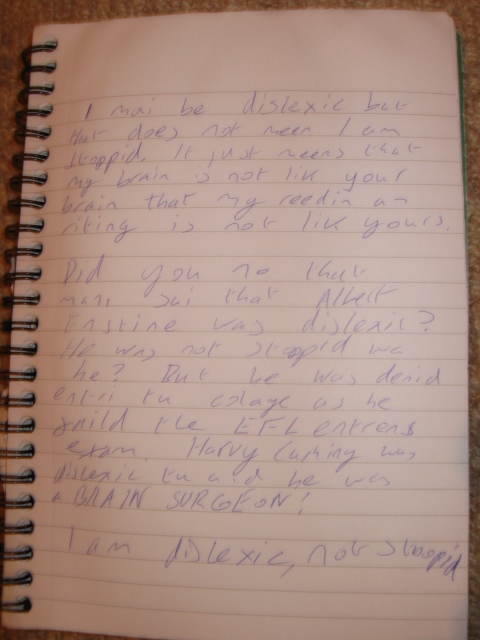 I mai be dislexic but
that does not meen I am
stoppid. It just meens that
my brain is not lik your
brain that my reedin an
riting is not lik yours.
Did you no that
mani sai that Albert
Enstine was dislexic?
He was not stoopid wa
he? But he was denid
entri tu colage as he
faild the EFL entrens
exam. Harvy Cushing was
dislexic tu and he was
a BRAIN SURGEON!
I am dislexic, not stoopid